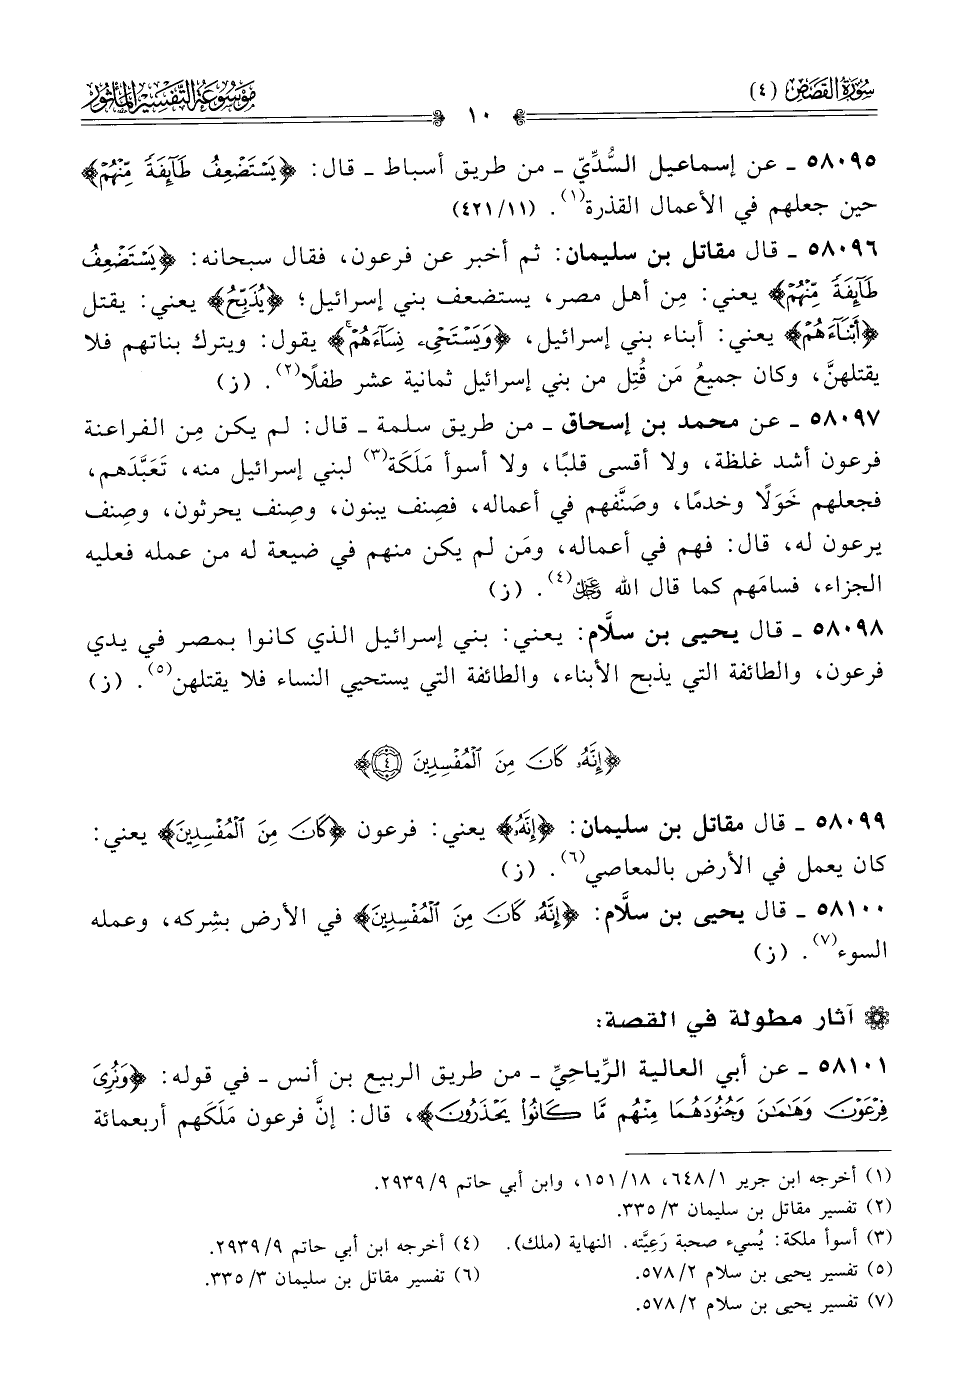 سُورَةُ القَصَصِ (٤)
١٠
مَوْسُوعَةُ التَّفْسِيرِ المَأْثُور
٥٨٠٩٥ ـ عن إسماعيل السُّدِّيّ ـ من طريق أسباط ـ قال: ﴿يَسْتَضْعِفُ طَآئِفَةً مِّنْهُمْ﴾
حين جعلهم في الأعمال القذرة(١). (٤٢١/١١)
٥٨٠٩٦ ـ قال مقاتل بن سليمان: ثم أخبر عن فرعون، فقال سبحانه: ﴿يَسْتَضْعِفُ
طَآئِفَةً مِّنْهُمْ﴾ يعني: مِن أهل مصر، يستضعف بني إسرائيل؛ ﴿يُذَبِّحُ﴾ يعني: يقتل
﴿أَبْنَآءَهُمْ﴾ يعني: أبناء بني إسرائيل، ﴿وَيَسْتَحْىِۦ نِسَآءَهُمْ ۚ﴾ يقول: ويترك بناتهم فلا
يقتلهنَّ، وكان جميعُ مَن قُتِل من بني إسرائيل ثمانية عشر طفلًا(٢). (ز)
٥٨٠٩٧ ـ عن محمد بن إسحاق ـ من طريق سلمة ـ قال: لم يكن مِن الفراعنة
فرعون أشد غلظة، ولا أقسى قلبًا، ولا أسوأ مَلَكَة(٣) لبني إسرائيل منه، تَعَبَّدَهم،
فجعلهم خَوَلًا وخدمًا، وصَنَّفهم في أعماله، فصِنف يبنون، وصِنف يحرثون، وصِنف
يرعون له، قال: فهم في أعماله، ومَن لم يكن منهم في ضيعة له من عمله فعليه
الجزاء، فسامَهم كما قال الله ﷿(٤). (ز)
٥٨٠٩٨ ـ قال يحيى بن سلَّام: يعني: بني إسرائيل الذي كانوا بمصر في يدي
فرعون، والطائفة التي يذبح الأبناء، والطائفة التي يستحيي النساء فلا يقتلهن(٥). (ز)
﴿إِنَّهُۥ كَانَ مِنَ ٱلْمُفْسِدِينَ ٤﴾
٥٨٠٩٩ ـ قال مقاتل بن سليمان: ﴿إِنَّهُۥ﴾ يعني: فرعون ﴿كَانَ مِنَ ٱلْمُفْسِدِينَ﴾ يعني:
كان يعمل في الأرض بالمعاصي(٦). (ز)
٥٨١٠٠ ـ قال يحيى بن سلَّام: ﴿إِنَّهُۥ كَانَ مِنَ ٱلْمُفْسِدِينَ﴾ في الأرض بشِركه، وعمله
السوء(٧). (ز)
آثار مطولة في القصة:
٥٨١٠١ ـ عن أبي العالية الرِّياحِيِّ ـ من طريق الربيع بن أنس ـ في قوله: ﴿وَنُرِىَ
فِرْعَوْنَ وَهَٰمَٰنَ وَجُنُودَهُمَا مِنْهُم مَّا كَانُوا۟ يَحْذَرُونَ﴾، قال: إنَّ فرعون مَلَكهم أربعمائة
(١) أخرجه ابن جرير ٦٤٨/١، ١٥١/١٨، وابن أبي حاتم ٢٩٣٩/٩.
(٢) تفسير مقاتل بن سليمان ٣٣٥/٣.
(٣) أسوأ ملكة: يُسيء صحبة رَعِيَّته. النهاية (ملك). (٤) أخرجه ابن أبي حاتم ٢٩٣٩/٩.
(٥) تفسير يحيى بن سلام ٥٧٨/٢. (٦) تفسير مقاتل بن سليمان ٣٣٥/٣.
(٧) تفسير يحيى بن سلام ٥٧٨/٢.